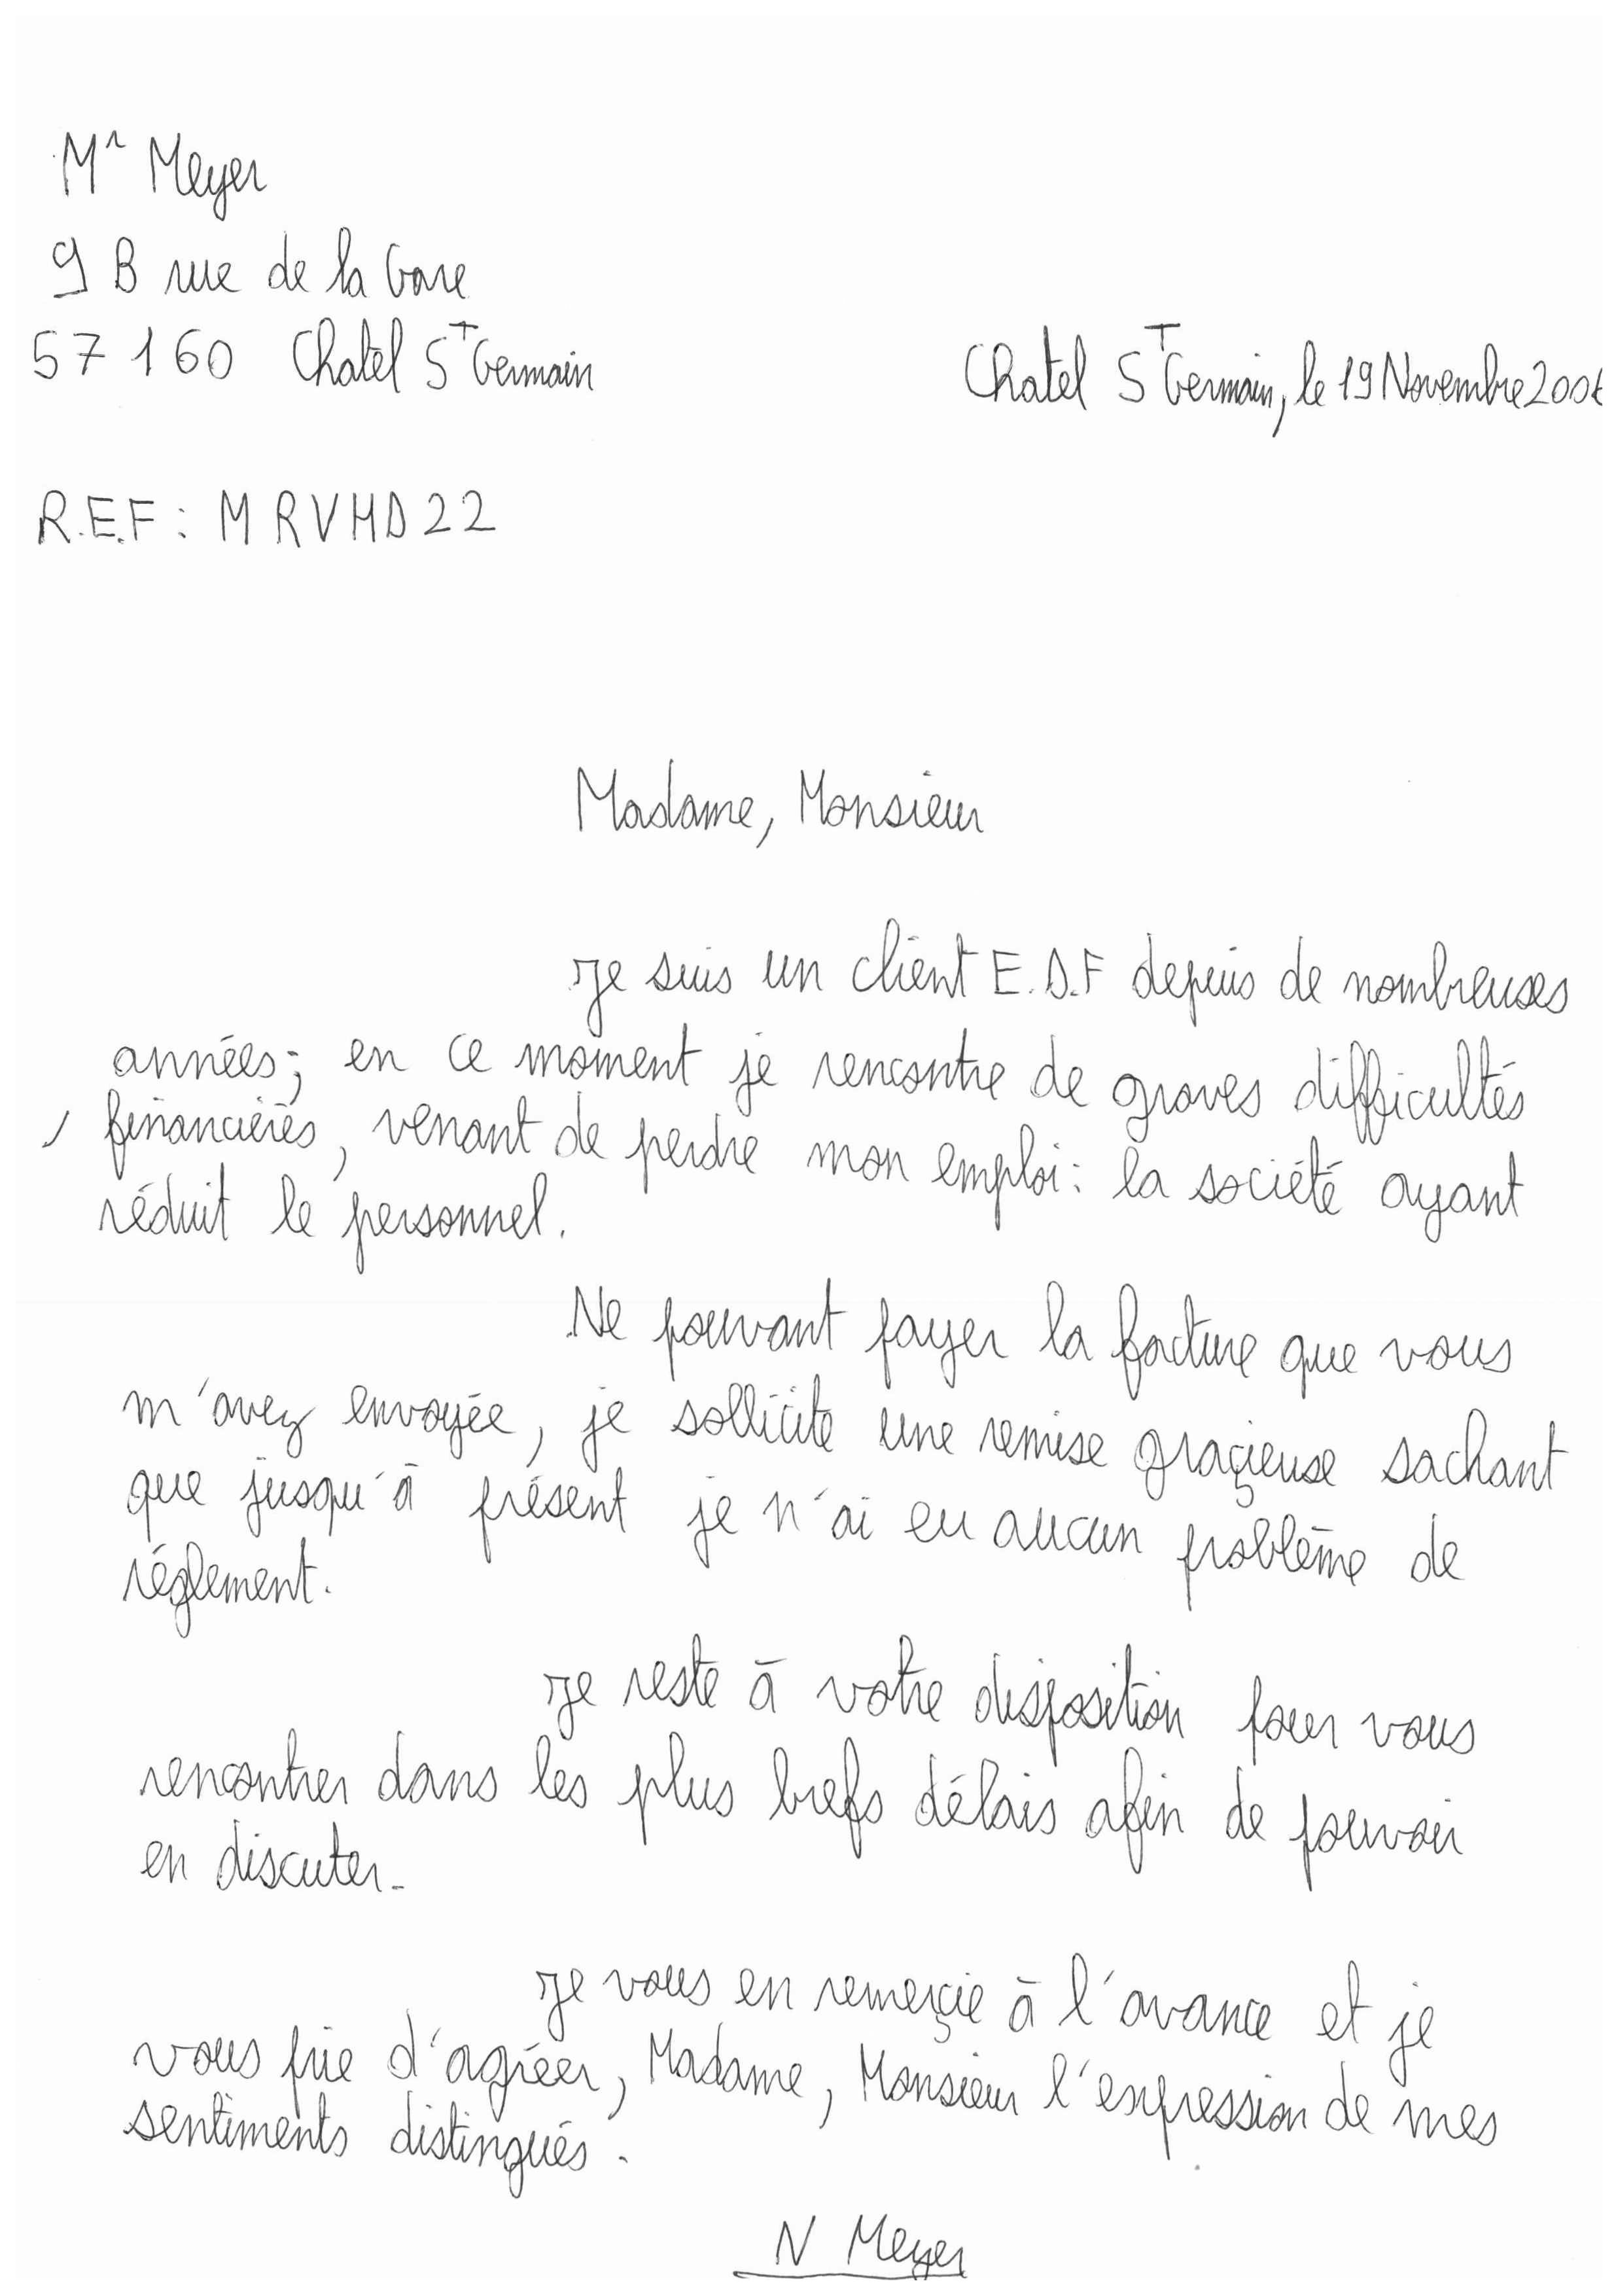 Mr Meyer
9 B rue de la Gare
57160 Chatel St Germain
Chatel St Germain, le 19 Novembre 2006
R.E.F : MRVHD22
Madame, Monsieur
Je suis un client E.D.F depuis de nombreuses
années; en ce moment je rencontre de graves difficultés
financières, venant de perdre mon emploi : la société ayant
réduit le personnel.
Ne pouvant payer la facture que vous
m'avez envoyée, je sollicite une remise graçieuse sachant
que jusqu'à présent je n'ai eu aucun problème de
réglement.
Je reste à votre disposition pour vous
rencontrer dans les plus brefs délais afin de pouvoir
en discuter.
Je vous en remerçie à l'avance et je
vous prie d'agréer, Madame, Monsieur l'expression de mes
sentiments distingués.
N Meyer